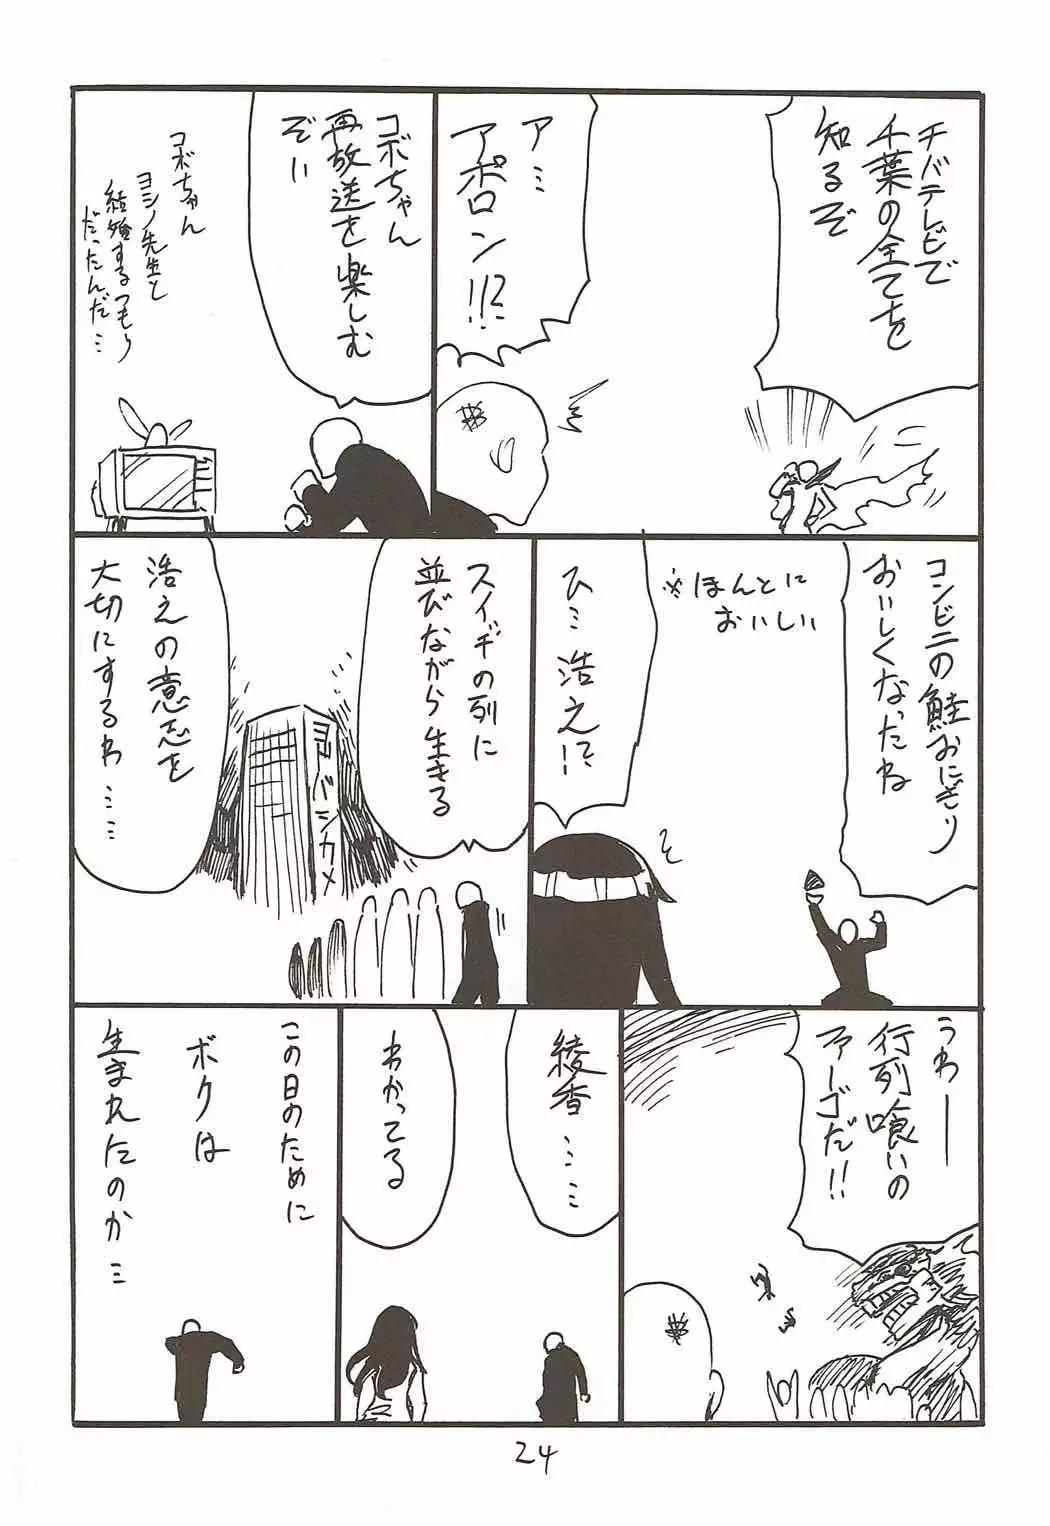 チバテレビで
千葉の全てを
知るぞ
アミ
アポロン!!?
コボちゃん
再放送を楽しむ
ぞい
コボちゃん
ヨシノ先生と
結婚するつもり
だったんだ…
コンビニの鮭おにぎり
おいしくなったね
※ほんとに
おいしい
ひ… 浩え!?
スイッチの列に
並びながら生きる
ヨドバシカメ
浩えの意志を
大切にするわ……
うわー
行列喰いの
ファーゴだ!!
綾香……
わかってる
この日のために
ボクは
生まれたのか…
24